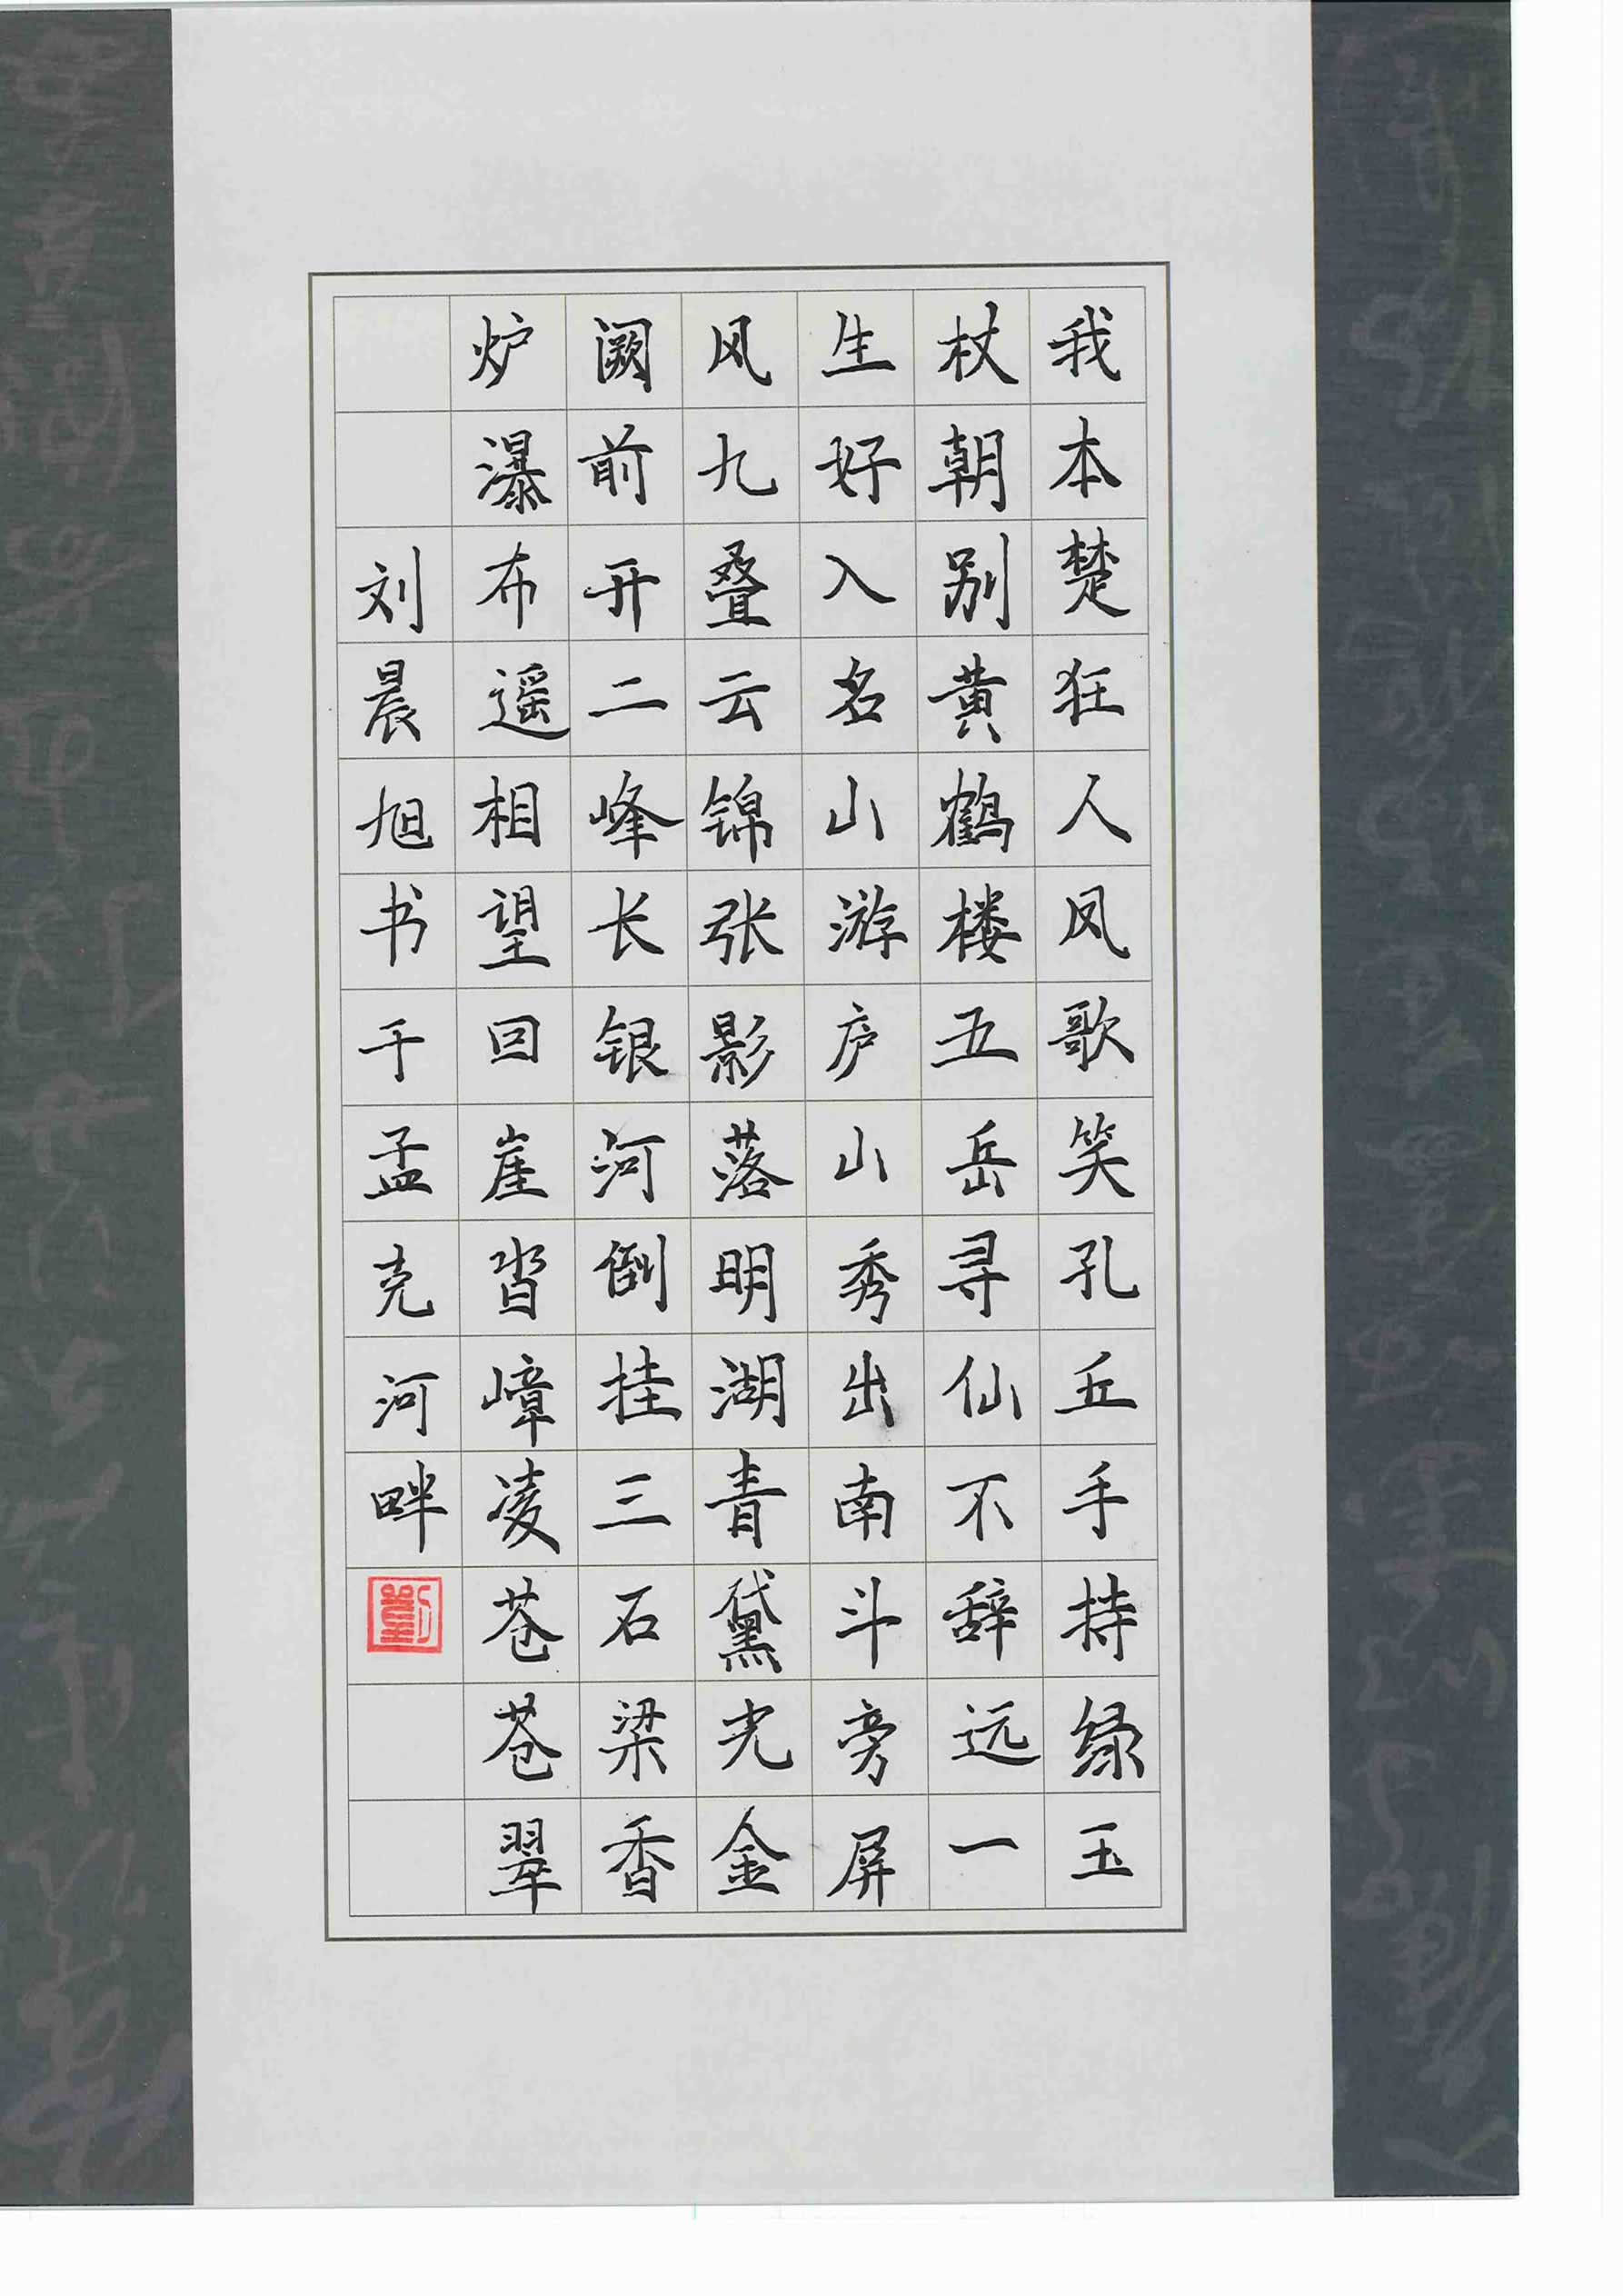 我本楚狂人凤歌笑孔丘手持绿玉
杖朝别黄鹤楼五岳寻仙不辞远一
生好入名山游庐山秀出南斗旁屏
风九叠云锦张影落明湖青黛光金
阙前开二峰长银河倒挂三石梁香
炉瀑布遥相望回崖沓嶂凌苍苍翠
刘晨旭书于孟克河畔